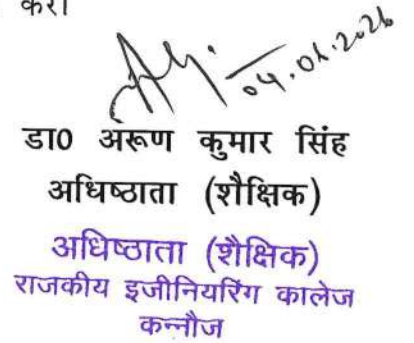 करें
04.01.2026
डा0 अरूण कुमार सिंह
अधिष्ठाता (शैक्षिक)
अधिष्ठाता (शैक्षिक)
राजकीय इजीनियरिंग कालेज
कन्नौज